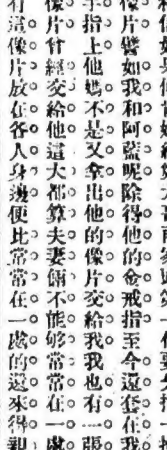 像片譬如我和阿藍呢除得他的金戒指至今還套在我
手指上他媽不是又拿出他的像片交給我我也有一張
像片曾經交給他這大都算夫妻倆不能够常常在一處
有這像片放在各人身邊便比常常在一處的還來得親